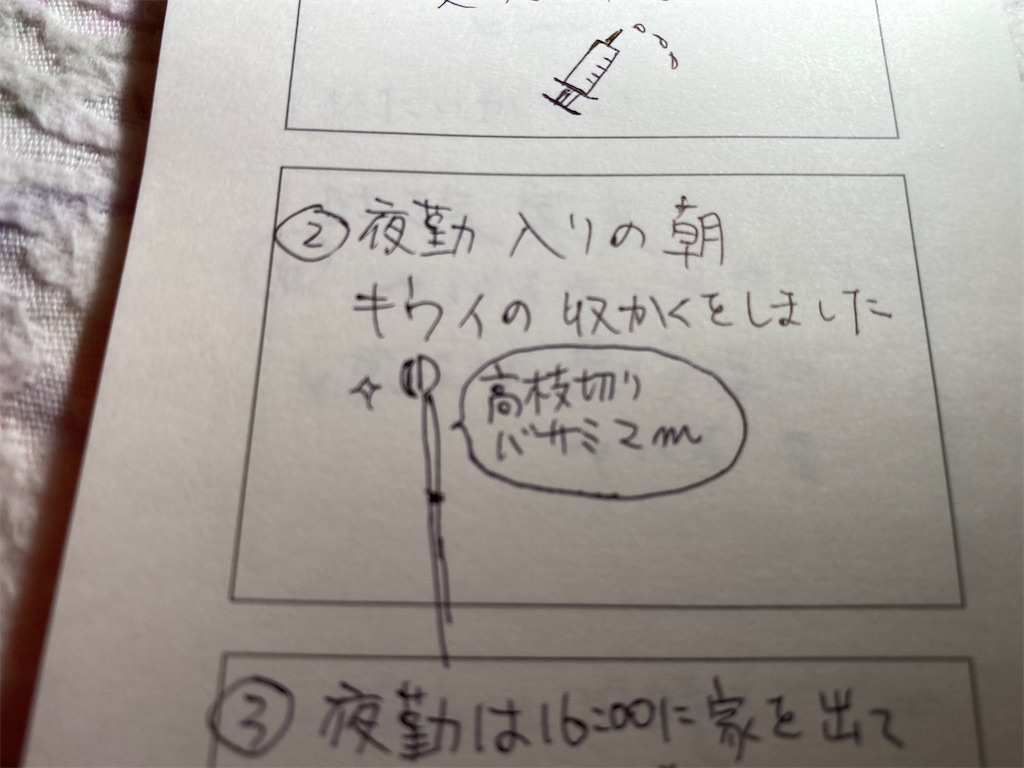 ②夜勤 入りの朝
キウイの収かくをしました
高枝切り
バサミ2m
③夜勤は16:00に家を出て